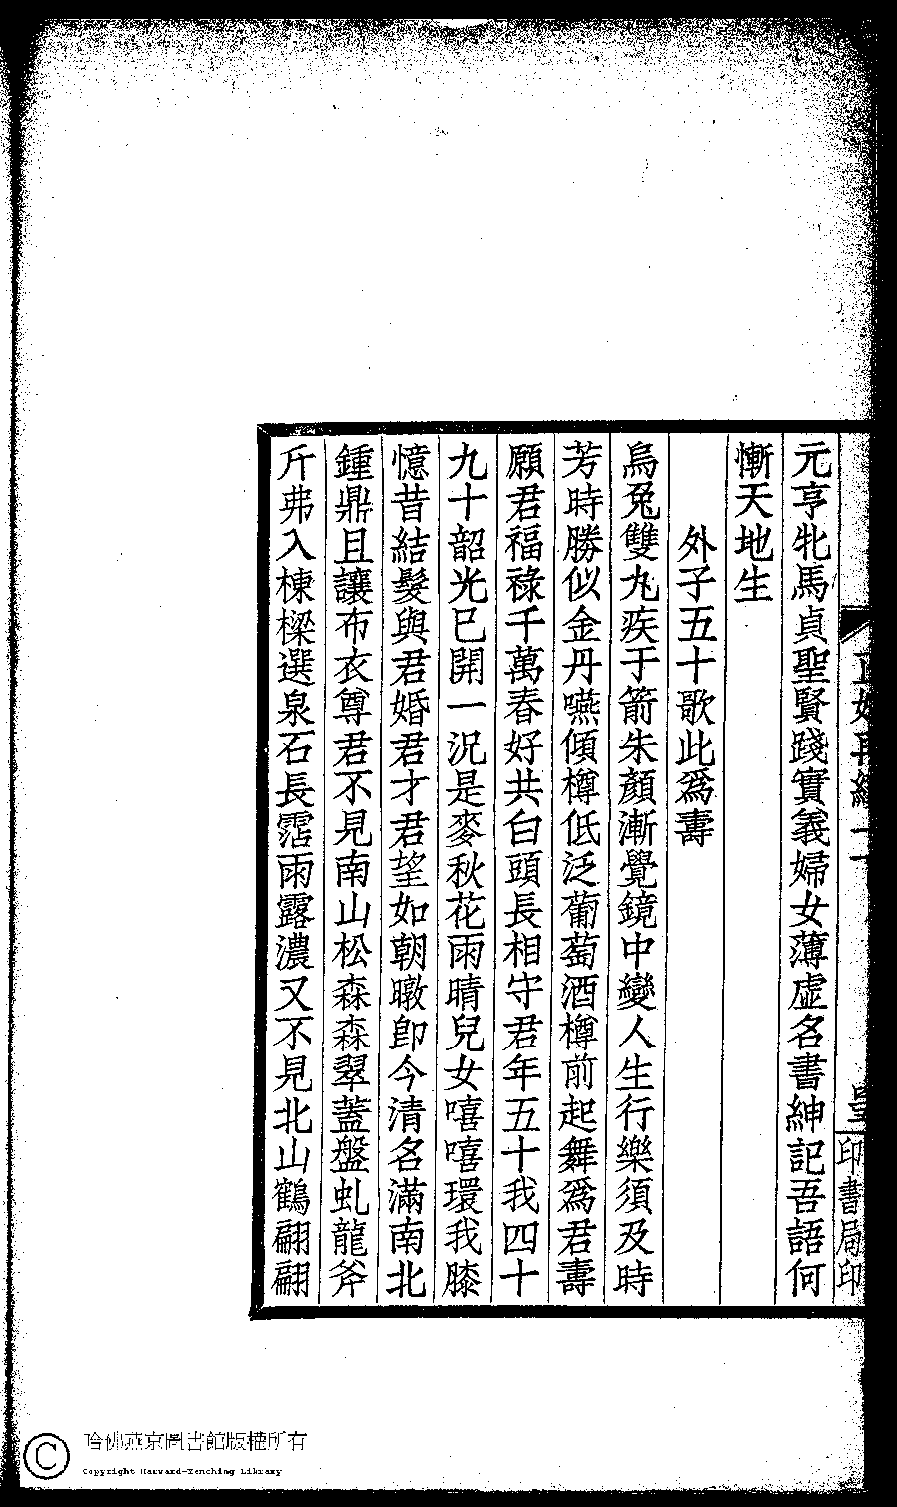 元亨牝馬貞聖賢踐實義婦女薄虛名書紳記吾語何
慚天地生
外子五十歌此爲壽
烏兔雙丸疾于箭朱顏漸覺鏡中變人生行樂須及時
芳時勝似金丹嚥傾樽低泛葡萄酒樽前起舞爲君壽
願君福祿千萬春好共白頭長相守君年五十我四十
九十韶光已開一況是麥秋花雨晴兒女嘻嘻環我膝
憶昔結髮與君婚君才君望如朝暾卽今清名滿南北
鍾鼎且讓布衣尊君不見南山松森森翠蓋盤虬龍斧
斤弗入棟樑選泉石長霑雨露濃又不見北山鶴翩翩
印書局印
哈佛燕京圖書館版權所有
Copyright Harvard-Yenching Library